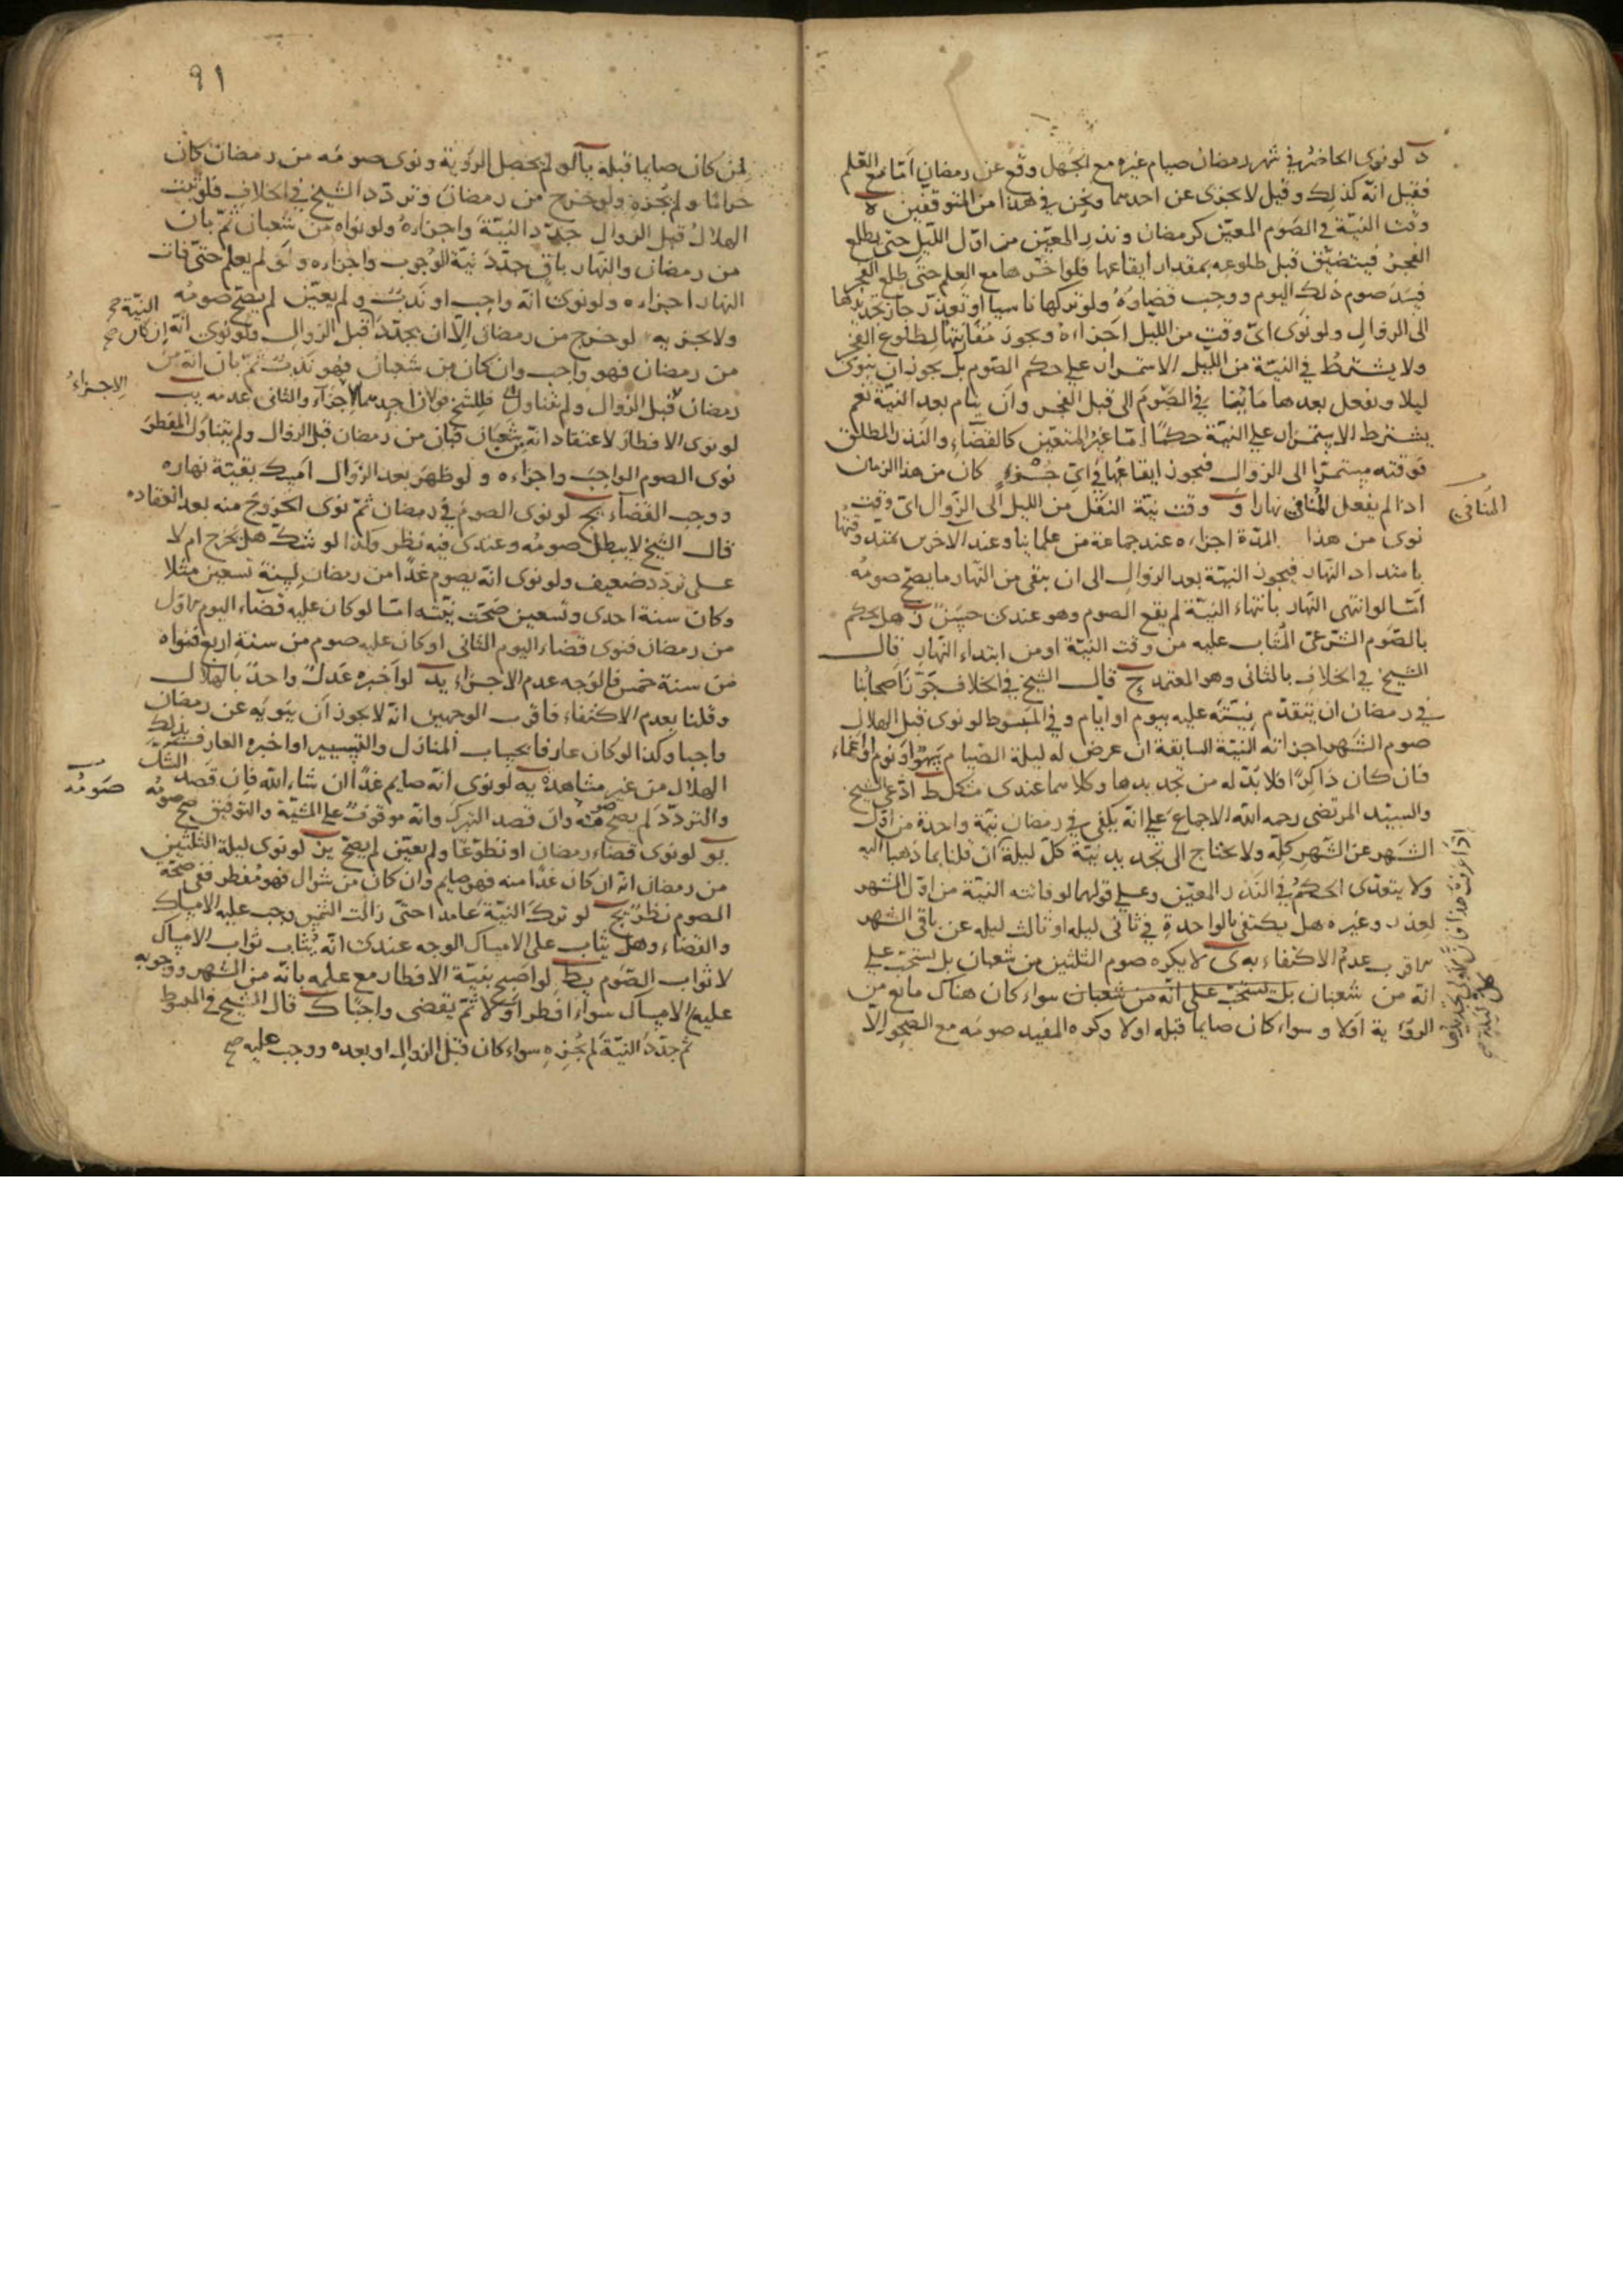 د لو نوى الحاضر في شهر رمضان صيام غيره مع الجهل وقع عن رمضان اما مع العلم
فقيل انه كذلك وقيل لا يجزى عن احدهما ونحن في هذا من المتوقفين ه
وقت النية في الصوم المعين كرمضان ونذر المعين من اول الليل حتى يطلع
الفجر فيتضيق قبل طلوعه بمقدار ايقاعها فلو اخرها مع العلم حتى طلع الفجر
فسد صوم ذلك اليوم ووجب قضاؤه ولو تركها ناسيا او لعذر جاز تجديدها
الى الزوال ولو نوى اى وقت من الليل اجزاه ويجوز مقارنتها لطلوع الفجر
ولا يشترط في النية من الليل الاستمرار على حكم الصوم بل يجوز ان ينوى
ليلا ويفعل بعدها ما ينا في الصوم الى قبل الفجر وان ينام بعد النية نعم
يشترط الاستمرار على النية حكما اما غير المتعين كالقضاء والنذر المطلق
فوقته مستمرا الى الزوال فيجوز ايقاعها في اى جزء كان من هذا الزمان
اذا لم يفعل المنافي نهارا و وقت نية النفل من الليل الى الزوال اى وقت
المنافي
نوى من هذا المدة اجزاه عند جماعة من علمائنا وعند الاخرين يمتد وقتها
بامتداد النهار فيجوز النية بعد الزوال الى ان يبقى من النهار ما يصح صومه
اما لو انتهى النهار بانتهاء النية لم يقع الصوم وهو عندى حسن ز هل يحكم
بالصوم الشرعي المثاب عليه من وقت النية او من ابتداء النهار قال
الشيخ في الخلاف بالثانى وهو المعتمد ح قال الشيخ في الخلاف جوز اصحابنا
في رمضان ان يتقدم نيته عليه بيوم او ايام و في المبسوط لو نوى قبل الهلال
صوم الشهر اجزاته النية السابقة ان عرض له ليلة الصيام سهو او نوم او اغماء
فان كان ذاكرا فلا بد له من تجديدها وكلاهما عندى مشكل ط ادعى الشيخ
والسيد المرتضى رحمه الله الاجماع على انه يكفي في رمضان نية واحدة من اول
الشهر عن الشهر كله ولا يحتاج الى تجديد نية كل ليلة ان قلنا بما ذهبا اليه
ولا يتعدى الحكم في النذر المعين وعلى قولهما لو فاتته النية من اول الشهر
لعذر وغيره هل يكتفى بالواحدة في ثانى ليله او ثالث ليله عن باقى الشهر
الاقرب عدم الاكتفاء به ى لا يكره صوم الثلثين من شعبان بل يستحب على
انه من شعبان بل يستحب على انه من شعبان سواء كان هناك مانع من
الرؤية اولا وسواء كان صايما قبله اولا وكره المفيد صومه مع الصحو الا
اذا عرفت هذا فان الاولى تجديدها
كل ليلة
٩١
لمن كان صايما قبله يا لو لم يحصل الرؤية ونوى صومه من رمضان كان
حراما ولم يجزه ولو خرج من رمضان وتردد الشيخ في الخلاف فلو ثبت
الهلال قبل الزوال جدد النية واجزاه ولو نواه من شعبان ثم بان
من رمضان والنهار باق جدد نية الوجوب واجزاه ولو لم يعلم حتى فات
النهار اجزاه ولو نوى انه واجب او ندب ولم يعين لم يصح صومه
ولا يجزيه لو خرج من رمضان الا ان يجدد قبل الزوال ولو نوى انه ان كان
النية صح
من رمضان فهو واجب وان كان من شعبان فهو ندب ثم بان انه من
رمضان قبل الزوال ولم يتناول فللشيخ قولان احدهما الاجزاء والثانى عدمه يب
الاجزاء
لو نوى الافطار لاعتقاد انه من شعبان فبان من رمضان قبل الزوال ولم يتناول المفطر
نوى الصوم الواجب واجزاه ولو ظهر بعد الزوال امسك بقية نهاره
ووجب القضاء يج لو نوى الصوم في رمضان ثم نوى الخروج منه بعد انعقاده
قال الشيخ لا يبطل صومه وعندى فيه نظر وكذا لو شك هل يخرج ام لا
على تردد ضعيف ولو نوى انه يصوم غدا من رمضان لسنة تسعين مثلا
وكان سنة احدى وتسعين صحت نيته اما لو كان عليه قضاء اليوم الاول
من رمضان فنوى قضاء اليوم الثانى او كان عليه صوم من سنة اربع فنواه
من سنة خمس فالوجه عدم الاجزاء يد لو اخبره عدل واحد بالهلال
وقلنا بعدم الاكتفاء فاقرب الوجهين انه لا يجوز ان ينويه عن رمضان
واجبا وكذا لو كان عارفا بحساب المنازل والتسيير او اخبره العارف بذلك
الهلال من غير مشاهدة يه لو نوى انه صايم غدا ان شاء الله فان قصد الشك
والتردد لم يصح صومه وان قصد التبرك وانه موقوف على المشية والتوفيق صح صومه
صومه
يو لو نوى قضاء رمضان او تطوعا ولم يعين لم يصح يز لو نوى ليلة الثلثين
من رمضان انه ان كان غدا منه فهو صايم وان كان من شوال فهو مفطر ففى صحة
الصوم نظر يح لو ترك النية عامدا حتى زالت الشمس وجب عليه الامساك
والقضاء وهل يثاب على الامساك الوجه عندى انه يثاب ثواب الامساك
لا ثواب الصوم يط لو اصبح بنية الافطار مع علمه بانه من الشهر ووجوبه
عليه الامساك سواء افطر اولا ثم يقضى واجبا ك قال الشيخ في المبسوط
ثم جدد النية لم يجزه سواء كان قبل الزوال او بعده ووجب عليه صح